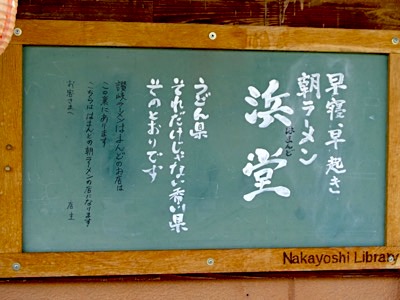 早寝・早起き
朝ラーメン
浜堂
はまんど
うどん県
それだけじゃない香川県
そのとおりです
讃岐ラーメンはまんどのお店は
この裏にあります
こちらははまんどの朝ラーメンの店になります
お客さまへ
店主
Nakayoshi Library